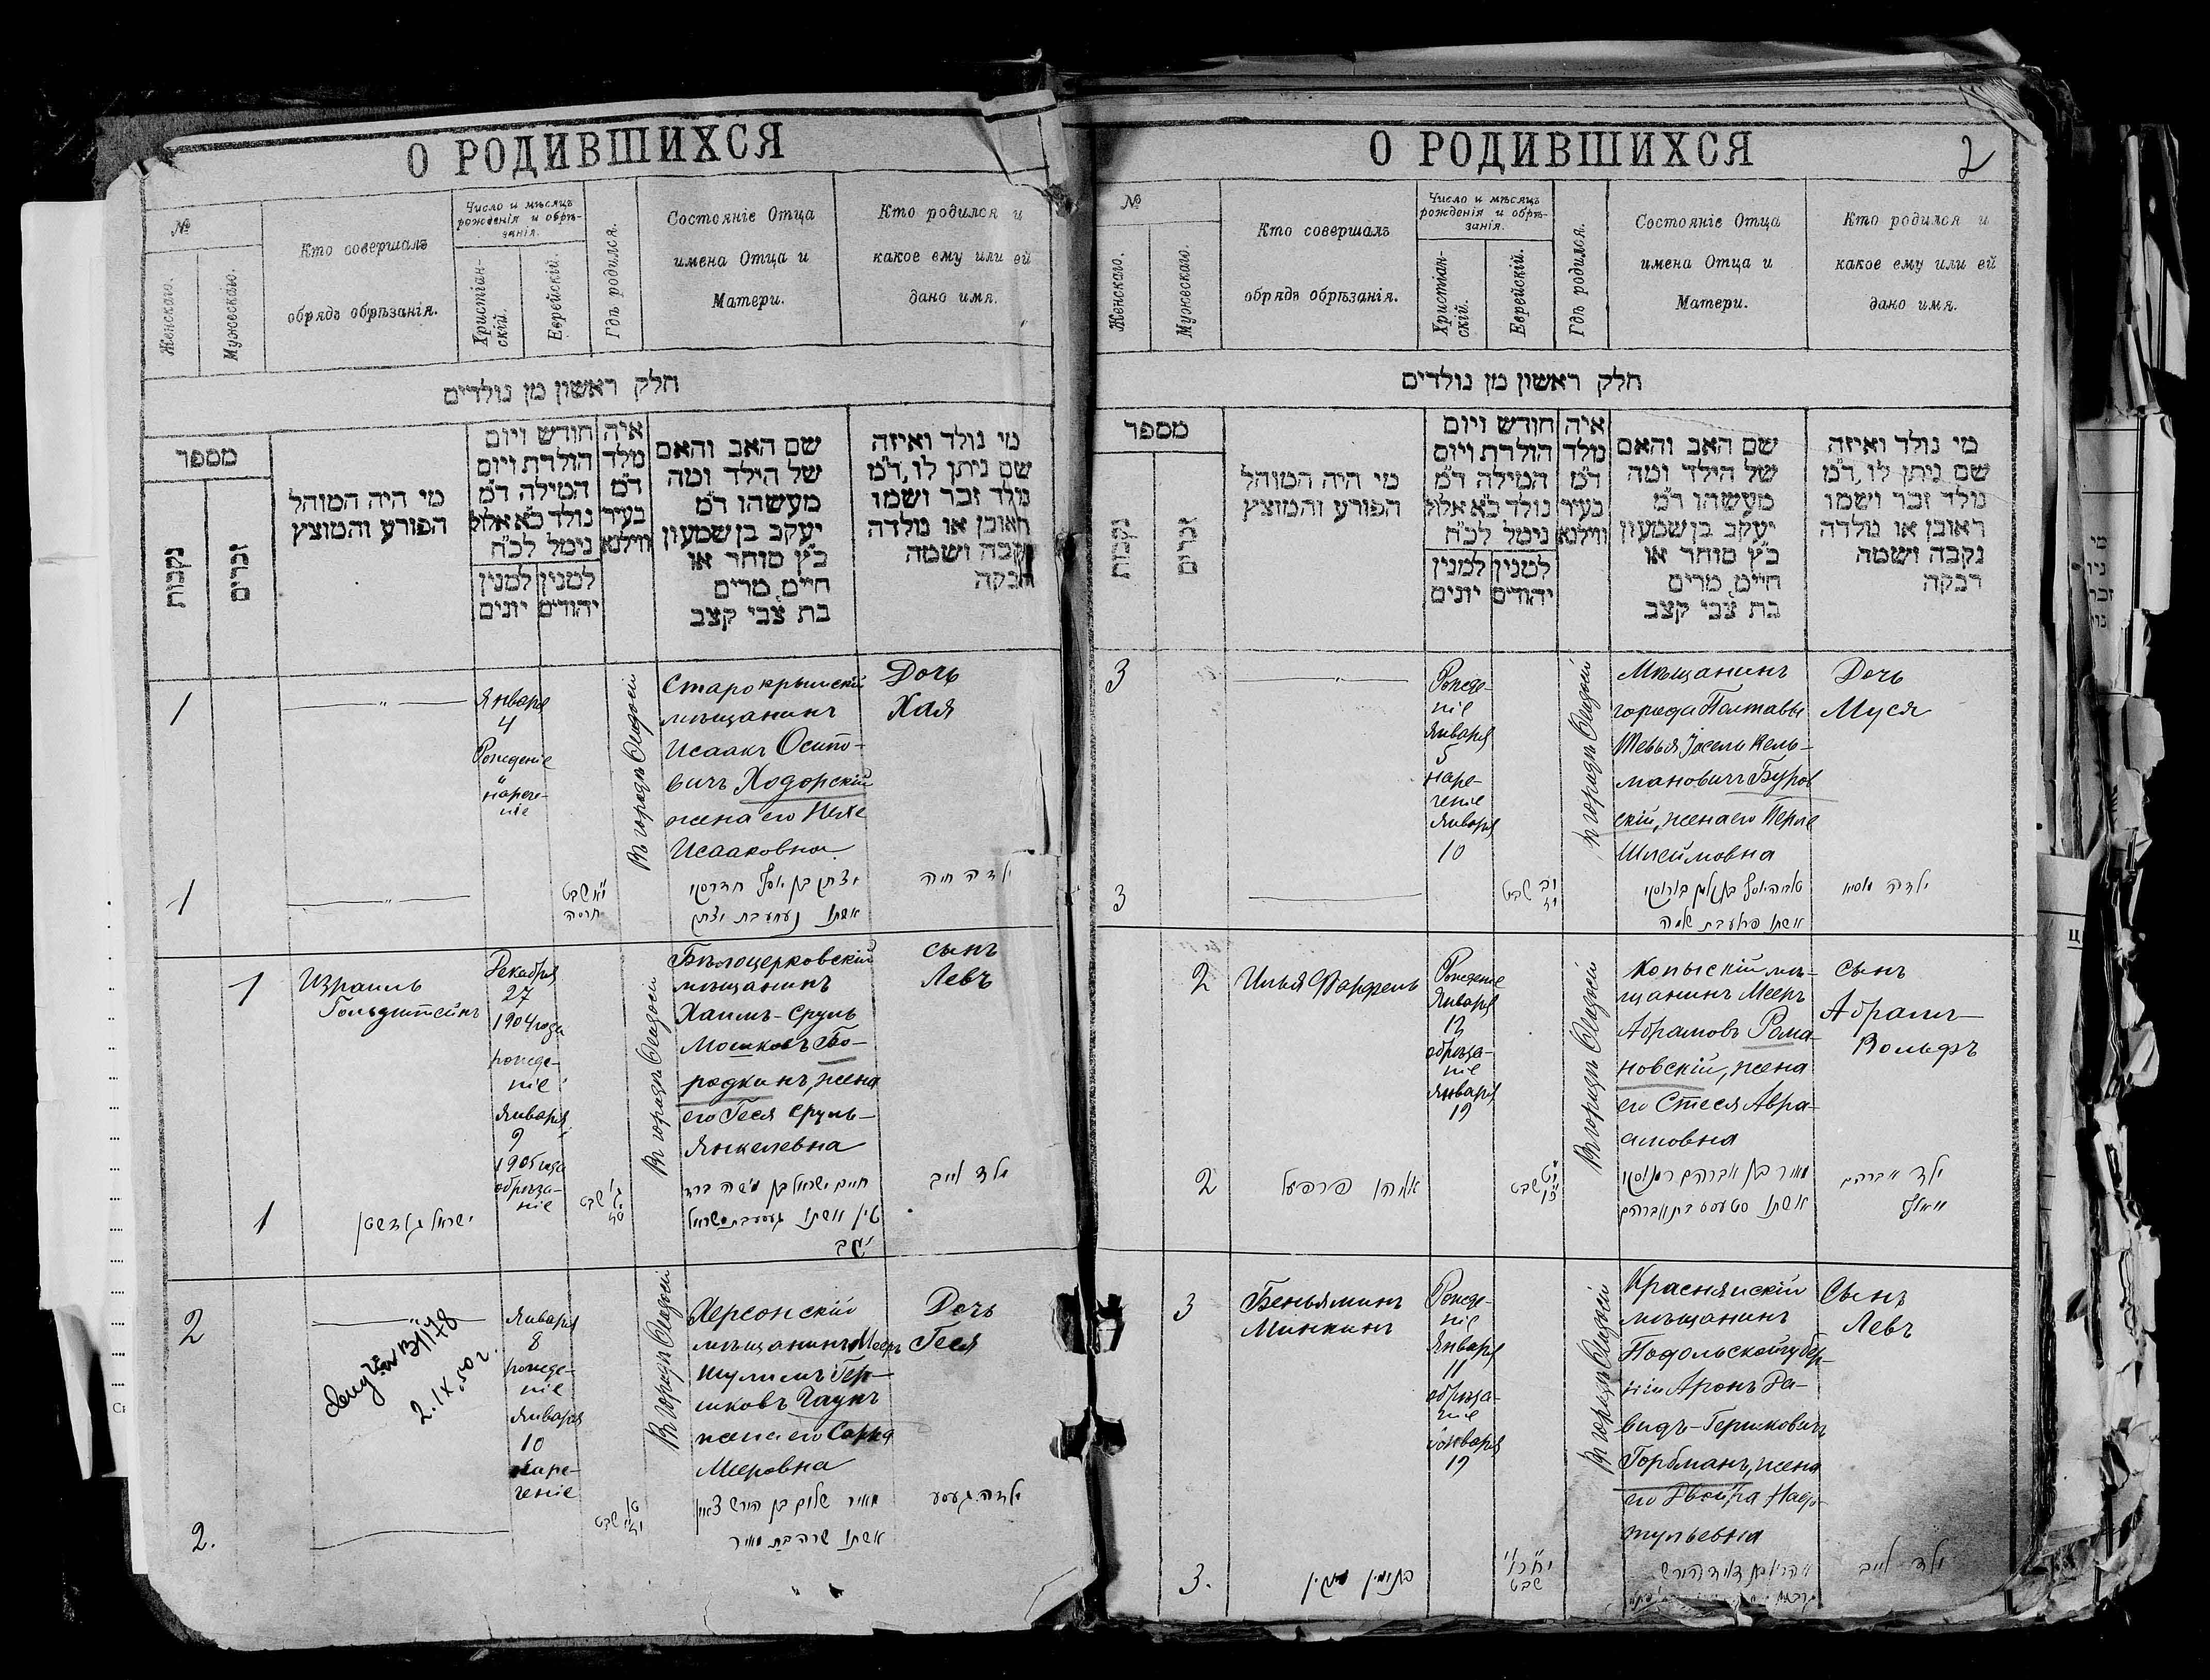 О РОДИВШИХСЯ
№
Женскаго.
Мужескаго.
Кто совершалъ
обрядъ обрѣзанія.
Число и мѣсяцъ
рожденія и обрѣ-
занія.
Христіан-
скій.
Еврейскій.
Гдѣ родился.
Состояніе Отца
имена Отца и
Матери.
Кто родился и
какое ему или ей
дано имя.
חלק ראשון מן נולדים
מספר
נקבות
זכרים
מי היה המוהל
הפורע והמוצץ
חודש ויום
הולדת ויום
המילה ד״מ
נולד כ״א אלול
נימל לכ״ח
למנין
יהודים
למנין
יונים
איה
מלד
ד״מ
בעיר
ווילנא
שם האב והאם
של הילד ומה
מעשהו ד״מ
יעקב בן שמעון
כ״ץ סוחר או
חיים, מרים
בת צבי קצב
מי נולד ואיזה
שם ניתן לו, ד״מ
מלד זכר ושמו
ראובן או מלדה
נקבה ושמה
רבקה
1
Января
4
Рожденіе
и
нарече-
ніе
Въ городѣ Ѳеодосіи
Старокрымскій
мѣщанинъ
Исаакъ Осипо-
вичъ Ходорскій
жена его Нехе
Исааковна
Дочь
Хая
1
ילדה חיה
1
Израиль
Гольдштейнъ
Декабря
27
1904 года
рожде-
ніе
Января
9
1905 года
обрѣза-
ніе
Въ городѣ Ѳеодосіи
Бѣлоцерковскій
мѣщанинъ
Хаимъ-Сруль
Мошковъ Бо-
родкинъ, жена
его Геся Сруль-
Янкелевна
сынъ
Левъ
1
ילד לייב
2
Января
8
рожде-
ніе
Января
10
наре-
ченіе
2.IX.50 г.
Въ городѣ Ѳеодосіи
Херсонскій
мѣщанинъ Мееръ
Шулимъ Гер-
шковъ
жена его Сарра
Мееровна
Дочь
Геся
2.
О РОДИВШИХСЯ
2
№
Женскаго.
Мужескаго.
Кто совершалъ
обрядъ обрѣзанія.
Число и мѣсяцъ
рожденія и обрѣ-
занія.
Христіан-
скій.
Еврейскій.
Гдѣ родился.
Состояніе Отца
имена Отца и
Матери.
Кто родился и
какое ему или ей
дано имя.
חלק ראשון מן נולדים
מספר
נקבות
זכרים
מי היה המוהל
הפורע והמוצץ
חודש ויום
הולדת ויום
המילה ד״מ
נולד כ״א אלול
נימל לכ״ח
למנין
יהודים
למנין
יונים
איה
מלד
ד״מ
בעיר
ווילנא
שם האב והאם
של הילד ומה
מעשהו ד״מ
יעקב בן שמעון
כ״ץ סוחר או
חיים, מרים
בת צבי קצב
מי נולד ואיזה
שם ניתן לו, ד״מ
מלד זכר ושמו
ראובן או מלדה
נקבה ושמה
רבקה
3
Рожде-
ніе
Января
5
наре-
ченіе
Января
10
Въ городѣ Ѳеодосіи
Мѣщанинъ
города Полтавы
Тевья Іосель Кель-
мановичъ Буров
скій, жена его Перле
Шлеймовна
Дочь
Муся
3
2
Илья Фарфель
Рожденіе
Января
12
обрѣза-
ніе
Января
19
Въ городѣ Ѳеодосіи
Копыскій мѣ-
щанинъ Мееръ
Абрамовъ Рома-
новскій, жена
его Стеся Авра-
амовна
сынъ
Абрамъ-
Вольфъ
2
ילד אברהם
3
Беньяминъ
Минкинъ
Рожде-
ніе
Января
11
обрѣза-
ніе
Января
19
Въ городѣ Ѳеодосіи
мѣщанинъ
Подольской губер-
ніи Аронъ Да-
видъ-Гершковичъ
Горбманъ, жена
его Двойра Наф-
тульевна
Сынъ
Левъ
3.
ילד לייב